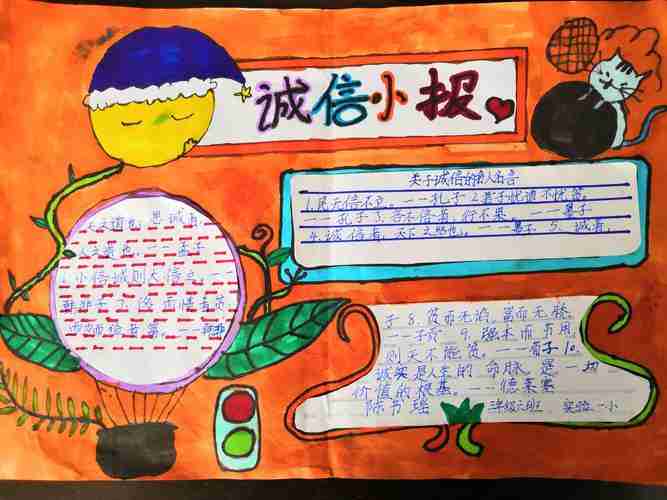 诚信小报
关于诚信的名人名言
1.民无信不立。——孔子 2.君子
——孔子 3.言不信者，行不果。——墨子
4.诚信者，天下之结也。——墨子 5.诚者，
天之道也，思诚者，
人之道也。——孟子
6.小信诚则大信立。——
韩非子 7.
子 8.贫而无谄，富而无骄。
——子贡 9.强本而节用，
则天不能贫。——荀子 10.
诚实是人生的命脉，是一切
价值的根基。——德莱塞
陈书瑶 三年级六班 实验一小